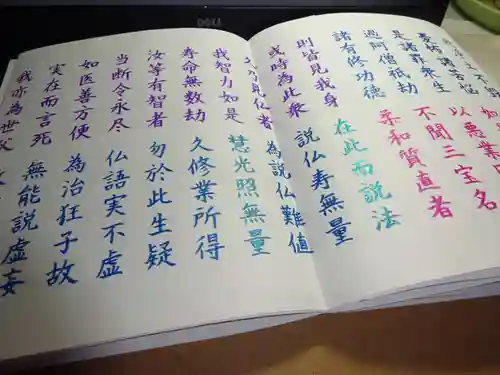 憂怖諸苦悩 如
是諸罪衆生 以悪業因
過阿僧祇劫 不聞三宝名
諸有修功徳 柔和質直者
則皆見我身 在此而説法
或時為此衆 説仏寿無量
久乃見仏者 為説仏難値
我智力如是 慧光照無量
寿命無数劫 久修業所得
汝等有智者 勿於此生疑
当断令永尽 仏語実不虚
如医善方便 為治狂子故
実在而言死 無能説虚妄
我亦為世父
DELL